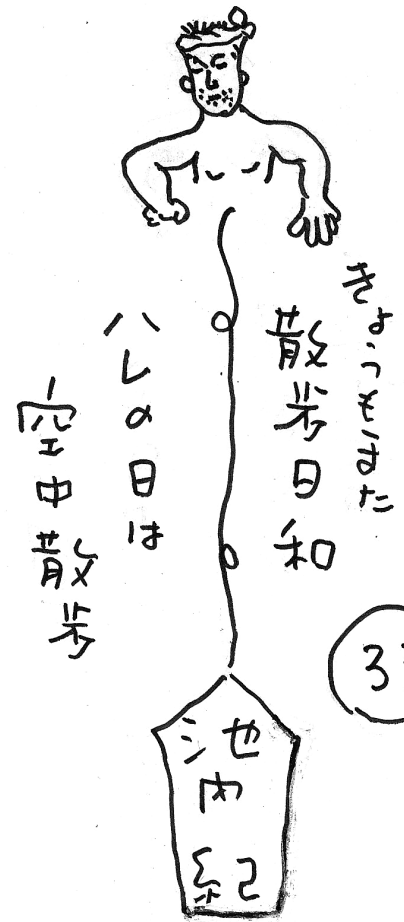 きょうもまた
散歩日和
ハレの日は
空中散歩
池内
紀